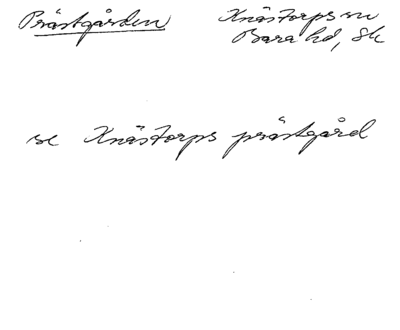 Prästgården
Knästorps sn
Bara hd, Sk
se Knästorps prästgård